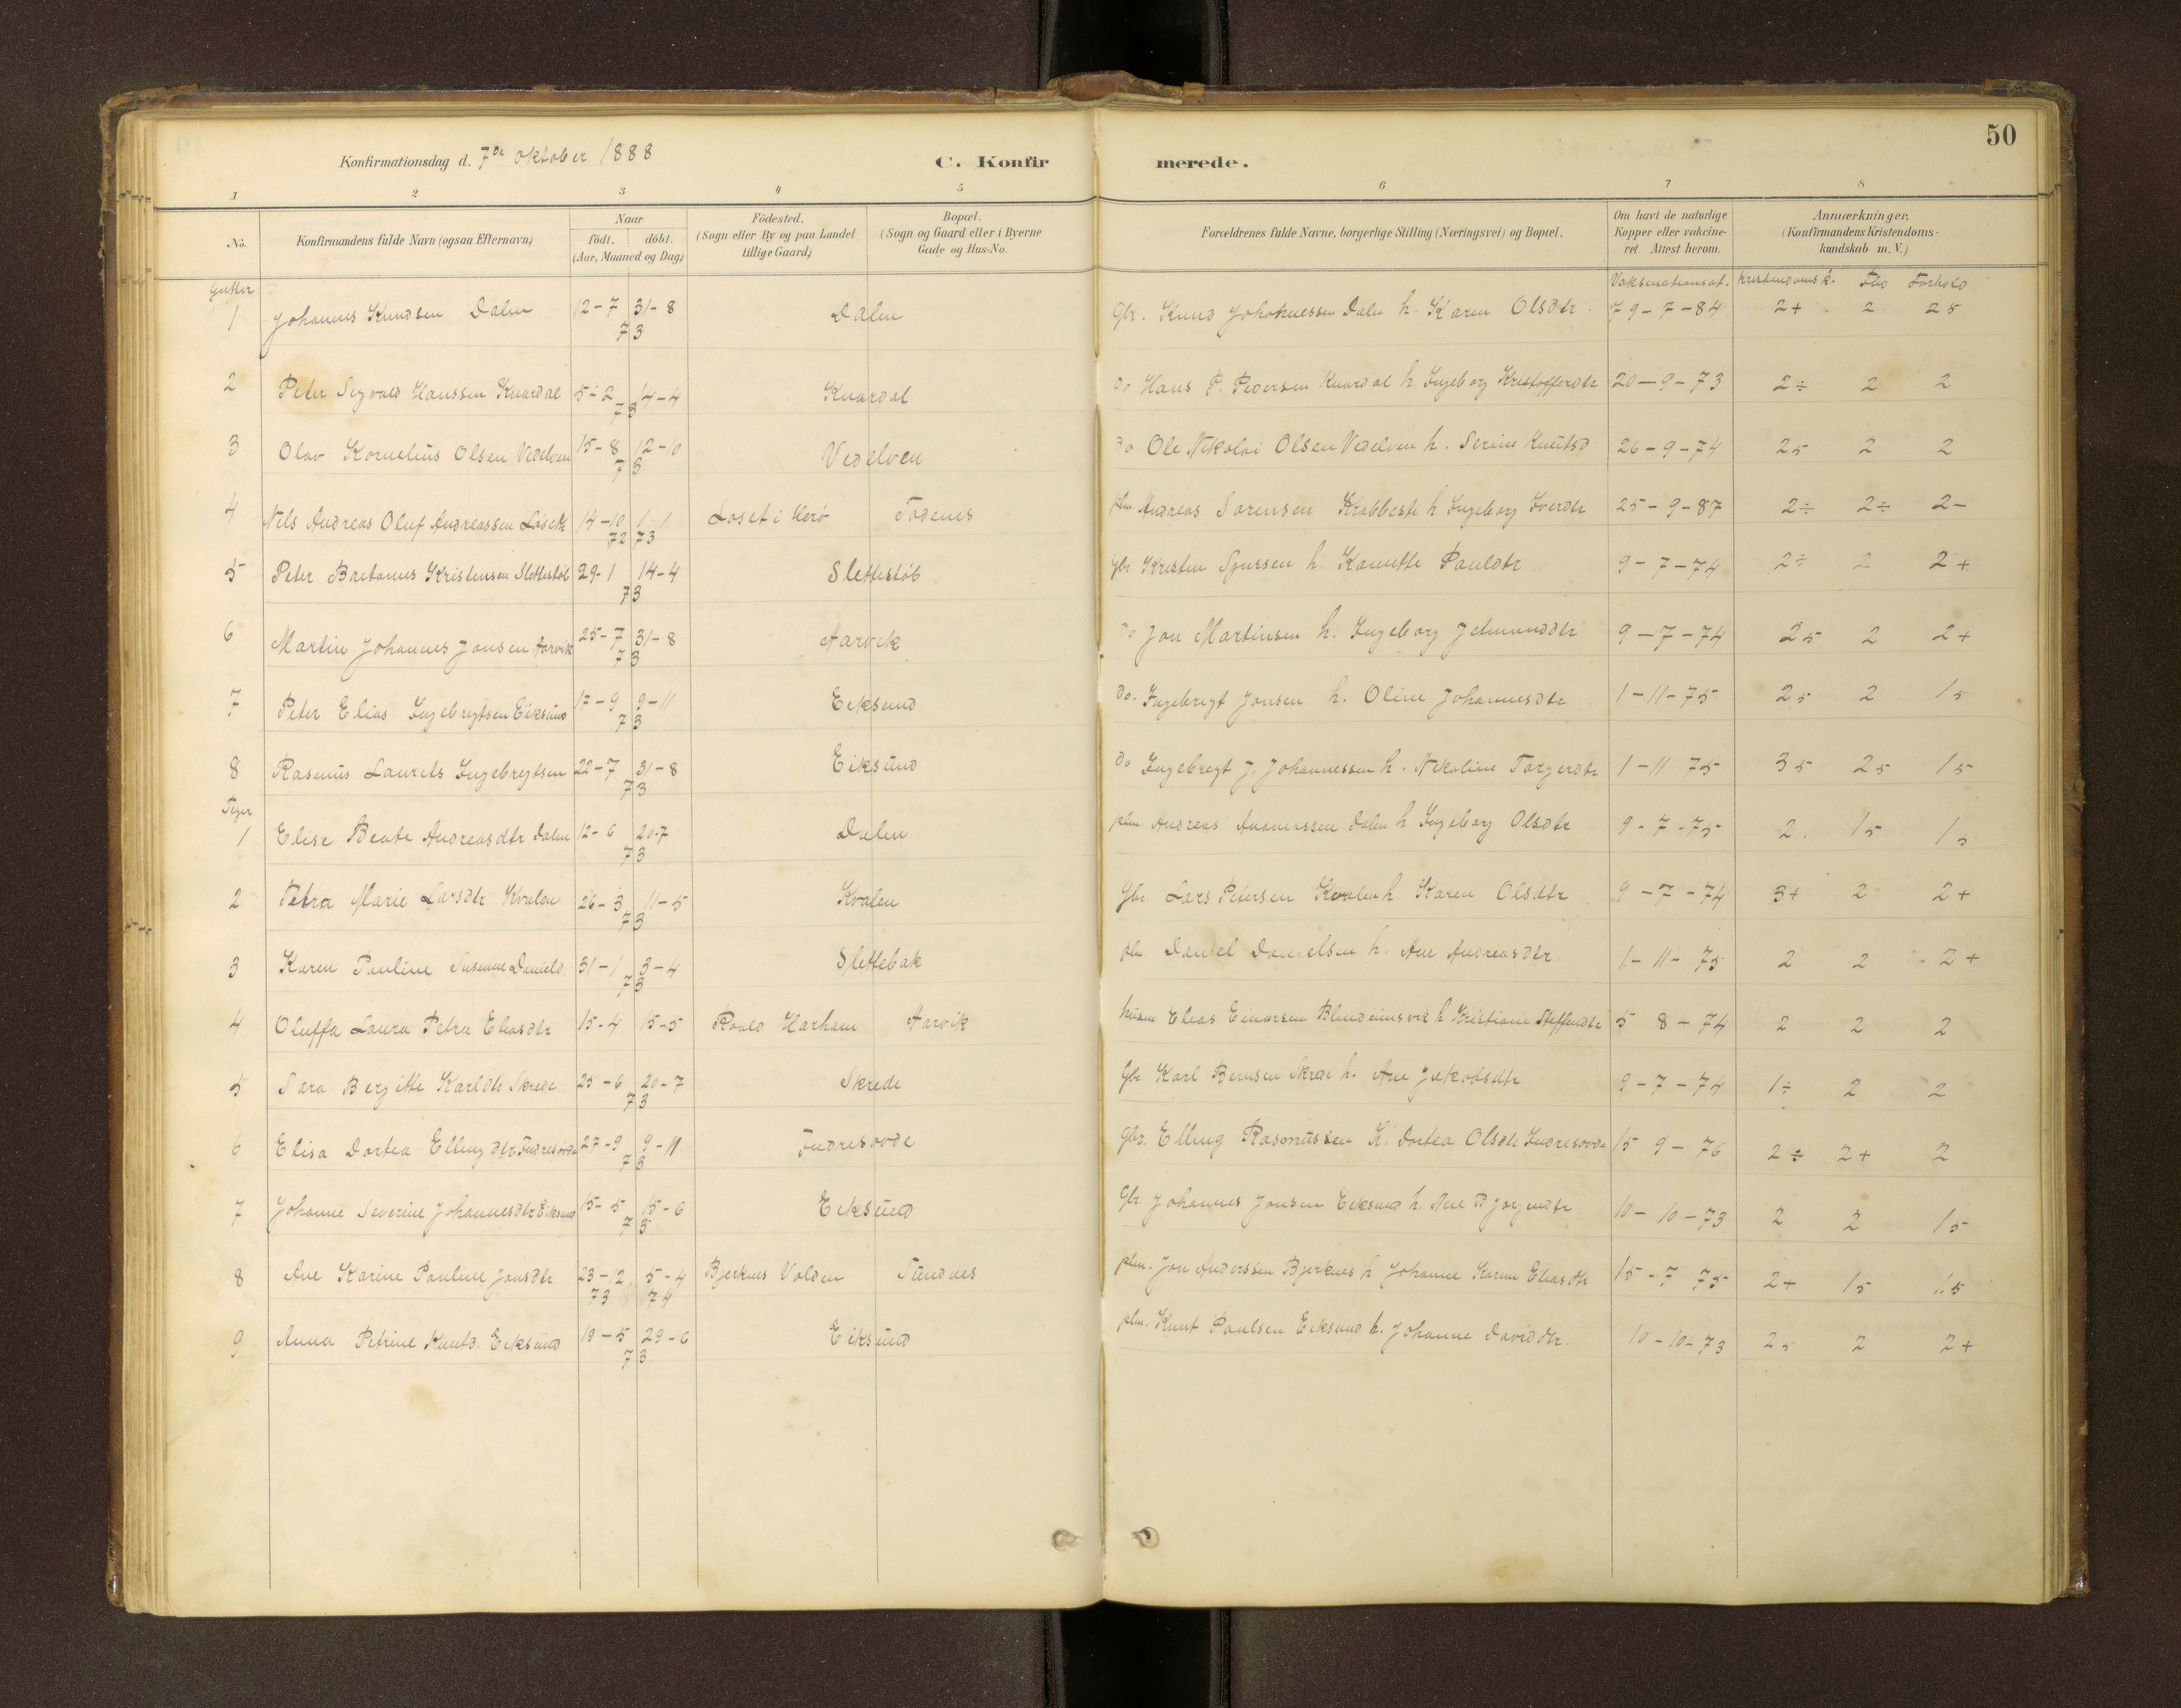 50
Konfirmationsdag d. 7de oktober 1888
C. Konfirmerede.
1 2 3 4 5 6 7 8
No. Konfirmandens fulde Navn (ogsaa Efternavn) Naar födt. döbt. (Aar, Maaned og Dag) Födested. (Sogn eller By og paa Landet tillige Gaard) Bopæl. (Sogn og Gaard eller i Byerne Gade og Hus-No. Forældrenes fulde Navne, borgerlige Stilling (Næringsvei) og Bopæl. Om havt de naturlige Kopper eller vakcineret. Attest herom. Anmærkninger. (Konfirmandens Kristendomskundskab m. V.)
Gutter Vaksinationsat. Kristendomsk. Flid Forhold
1 Johannes Knudsen Dalen 12-7 31-8 73 Dalen Gbr. Knud Johannessen Dalen h. Karen Olsdtr. 9-7-84 2+ 2 25
2 Peter Sigvald Hanssen Knardal 5-2 14-4 73 Knardal do Hans P. Pedersen Knardal h. Ingeborg Kristofferdtr 20-9-73 2÷ 2 2
3 Olav Kornelius Olsen Vedelven 15-8 12-10 73 Vedelven do Ole Nikolai Olsen Vedelven h. Serine Knutsd 26-9-74 25 2 2
4 Nils Andreas Oluf Andreassen Löseth 14-10 72 1-1 73 Loset i Herö Tödenes plm. Andreas Sorensen Krabbest h Ingeborg Iverdtr 25-9-87 2÷ 2÷ 2-
5 Peter Bastanus Kristensen Slettestöl 29-1 14-4 73 Slettestöl Gbr. Kristen Sjursen h. Kanutte Pauldtr 9-7-74 2÷ 2 2+
6 Martin Johannes Jonsen Aarvik 25-7 31-8 73 Aarvik do Jon Martinsen h. Ingeborg Jetmunddtr 9-7-74 25 2 2+
7 Peter Elias Ingebrigtsen Eiksund 17-9 9-11 73 Eiksund do. Ingebrigt Jonsen h. Oline Johannesdtr 1-11-75 25 2 15
8 Rasmus Laurits Ingebrigtsen 22-7 31-8 73 Eiksund do Ingebrigt J. Johannessen h. Nikoline Torgerdtr 1-11 75 35 25 15
Piger
1 Elise Beate Andreasdtr Dalen 12-6 20-7 73 Dalen plm Andreas Dalen h Ingeborg Olsdtr 9-7-75 2. 15 15
2 Petra Marie Larsdtr Kvalen 26-3 11-5 73 Kvalen Gbr Lars Petersen Kvalen h Karen Olsdtr 9-7-74 3+ 2 2+
3 Karen Pauline Susanne Danield. 31-1 3-4 73 Slettebak plm Daniel Danielsen h. Ane Andreasdtr. 1-11-75 2 2 2+
4 Oluffa Laura Petra Eliasdtr 15-4 15-5 Roald Harham Aarvik husm Elias Einarsen Blindeimsvik h Kristiane Steffendtr 5 8-74 2 2 2
5 Sara Bergitte Karldtr Skrede 25-6 20-7 73 Skrede Gbr Karl Bernsen Skrede h. Ane Jakobsdtr 9-7-74 1÷ 2 2
6 Elisa Dortea Ellingdtr. Indresovde 27-9 9-11 73 Indresovde Gbr. Elling Rasmussen h. Dortea Olsdtr Indresovde 15 9-76 2÷ 2+ 2
7 Johanne Severine Johannesdtr Eiksund 15-5 15-6 73 Eiksund Gbr Johannes Jonsen Eiksund h. Ane Bjorjendtr 10-10-73 2 2 15
8 Ane Karine Pauline Jonsdtr 23-12 73 5-4 74 Bjerknes Volden Sundnes plm. Jon Anderssen Bjerknes h Johanne Karine Eliasdtr 15-7 75 2+ 15 15
9 Anna Petrine Knutd. Eiksund 19-5 29-6 73 Eiksund plm. Knut Paulsen Eiksund h. Johanne Daviddtr. 10-10-73 25 2 2+